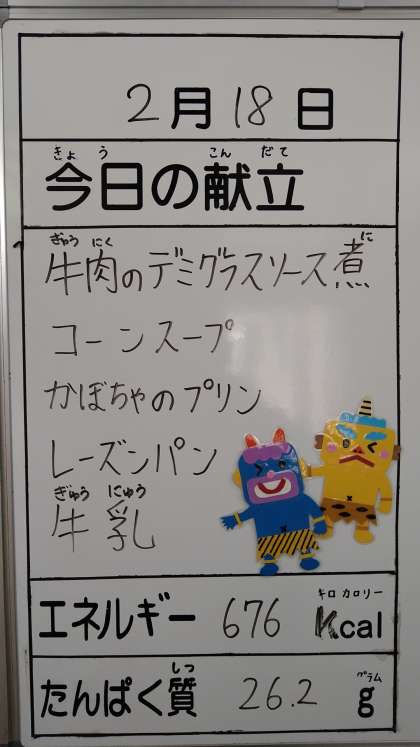 2月18日
きょう こんだて
今日の献立
ぎゅうにく に
牛肉のデミグラスソース煮
コーンスープ
かぼちゃのプリン
レーズンパン
ぎゅうにゅう
牛乳
キロカロリー
エネルギー 676 Kcal
しつ グラム
たんぱく質 26.2 g